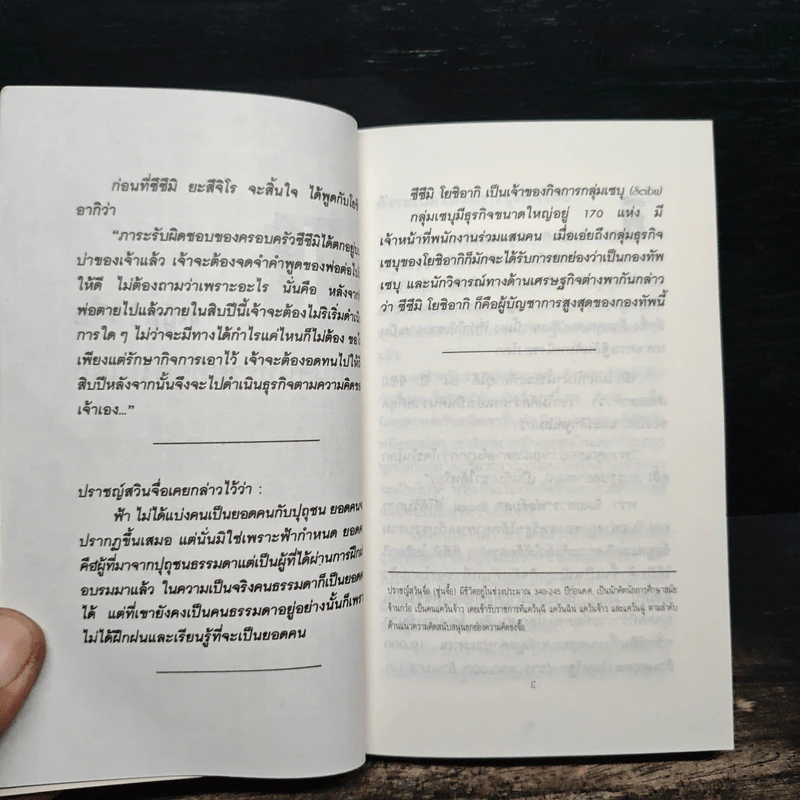 ก่อนที่ซีซึมิ ยะสึจิโร จะสิ้นใจ ได้พูดกับโยชิ
อากิว่า
“ภาระรับผิดชอบของครอบครัวซีซึมิได้ตกอยู่บน
บ่าของเจ้าแล้ว เจ้าจะต้องจดจำคำพูดของพ่อต่อไปนี้
ให้ดี ไม่ต้องถามว่าเพราะอะไร นั่นคือ หลังจากที่
พ่อตายไปแล้วภายในสิบปีนี้เจ้าจะต้องไม่ริเริ่มดำเนิน
การใด ๆ ไม่ว่าจะมีทางได้กำไรแค่ไหนก็ไม่ต้อง ขอ
เพียงแต่รักษากิจการเอาไว้ เจ้าจะต้องอดทนไปให้
สิบปีหลังจากนั้นจึงจะไปดำเนินธุรกิจตามความคิดของ
เจ้าเอง...”
ปราชญ์สวินจื่อเคยกล่าวไว้ว่า :
ฟ้า ไม่ได้แบ่งคนเป็นยอดคนกับปุถุชน ยอดคน
ปรากฏขึ้นเสมอ แต่นั่นมิใช่เพราะฟ้ากำหนด ยอดคน
คือผู้ที่มาจากปุถุชนธรรมดาแต่เป็นผู้ที่ได้ผ่านการฝึกฝน
อบรมมาแล้ว ในความเป็นจริงคนธรรมดาก็เป็นยอดคน
ได้ แต่ที่เขายังคงเป็นคนธรรมดาอยู่อย่างนั้นก็เพราะ
ไม่ได้ฝึกฝนและเรียนรู้ที่จะเป็นยอดคน
ซีซึมิ โยชิอากิ เป็นเจ้าของกิจการกลุ่มเซบุ (Seibu)
กลุ่มเซบุมีธุรกิจขนาดใหญ่อยู่ 170 แห่ง มี
เจ้าหน้าที่พนักงานร่วมแสนคน เมื่อเอ่ยถึงกลุ่มธุรกิจ
เซบุของโยชิอากิก็มักจะได้รับการยกย่องว่าเป็นกองทัพ
เซบุ และนักวิจารณ์ทางด้านเศรษฐกิจต่างพากันกล่าว
ว่า ซีซึมิ โยชิอากิ ก็คือผู้บัญชาการสูงสุดของกองทัพนี้
ปราชญ์สวินจื่อ (ซุ่นจื้อ) มีชีวิตอยู่ในช่วงประมาณ 340-245 ปีก่อนค.ศ. เป็นนักคิดนักการศึกษาสมัย
จ้านกว๋อ เป็นคนแคว้นจ้าว เคยเข้ารับราชการที่แคว้นฉี แคว้นฉิน แคว้นจ้าว และแคว้นฉู่ ตามลำดับ
ด้านแนวความคิดสนับสนุนยกย่องความคิดขงจื้อ
17